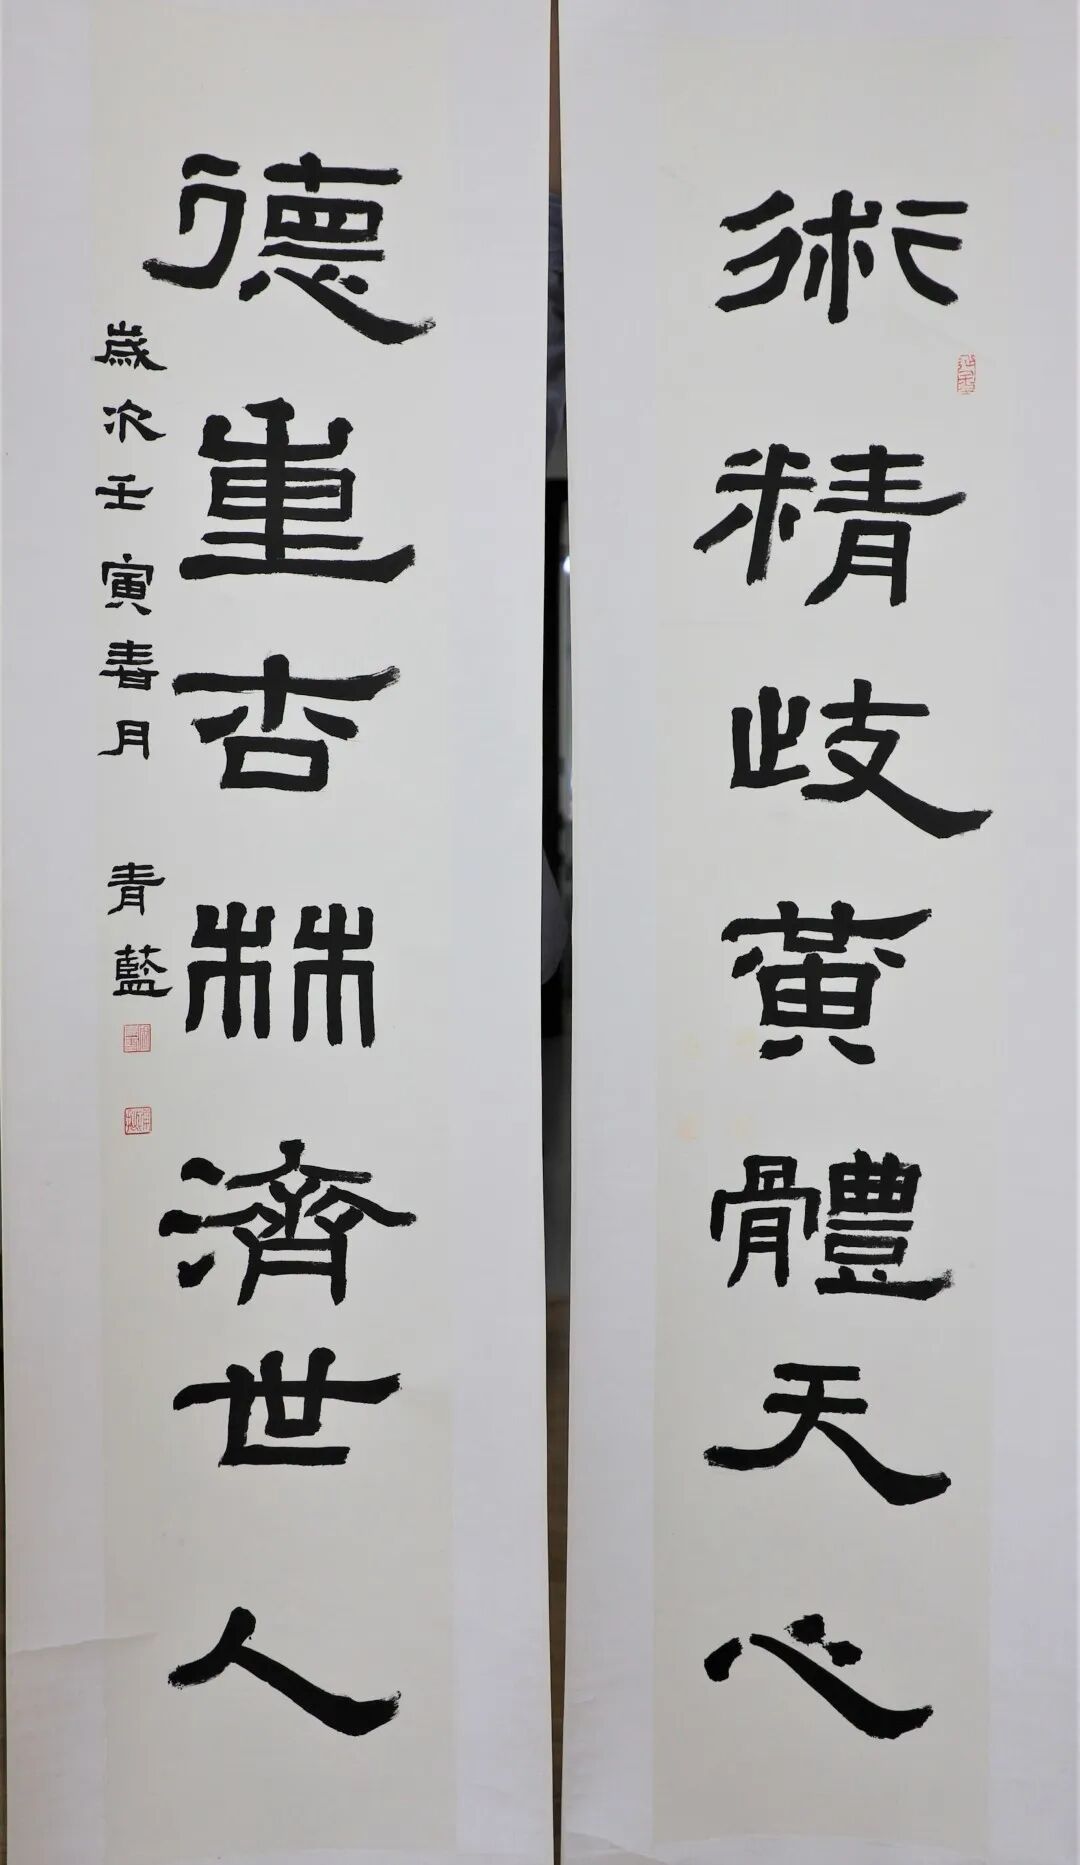 術精歧黃體天心
德重杏林濟世人
歲次壬寅春月 青藍